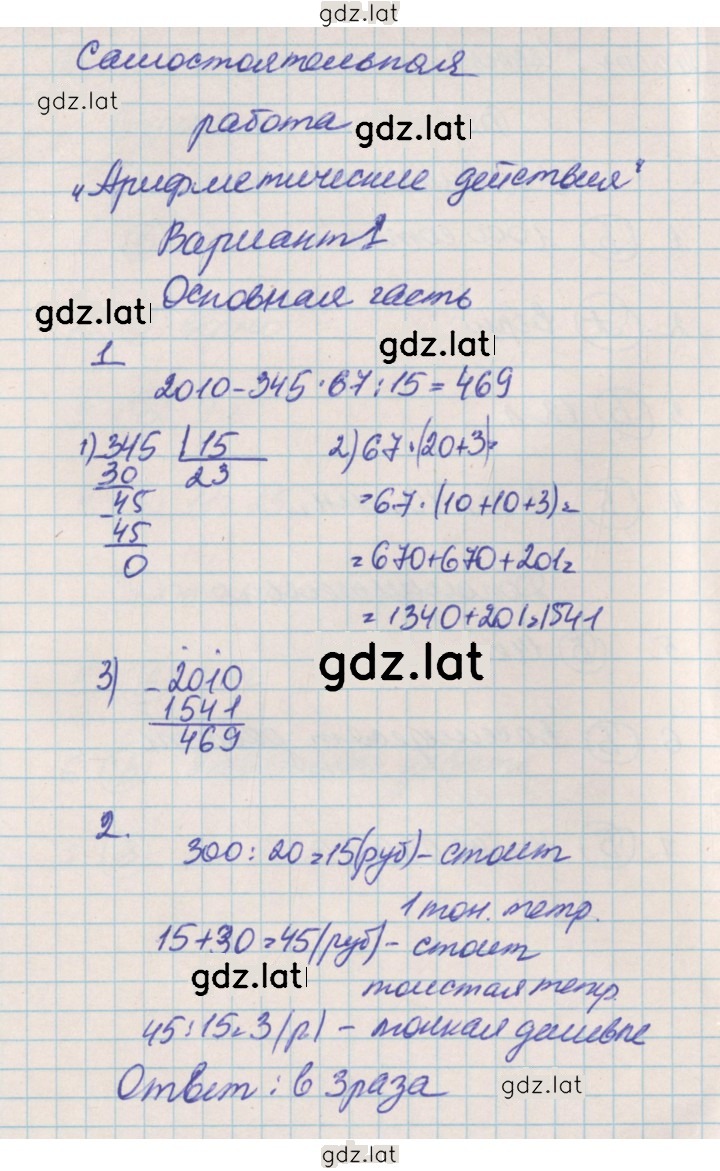 gdz.lat
Самостоятельная
gdz.lat
работа gdz.lat
"Арифметические действия"
Вариант 1
Основная часть
gdz.lat
1
gdz.lat
2010-345·67:15=469
1) 345 | 15
30 23
45
45
0
2) 67·(20+3)=
=67·(10+10+3)=
=670+670+201=
=1340+201=1541
gdz.lat
3) - 2010
1541
469
2.
300:20=15(руб)-стоит
1 тон. тетр.
15+30=45(руб)-стоит
gdz.lat
толстая тетр.
45:15=3(р) - тонкая дешевле
Ответ: в 3 раза
gdz.lat
gdz.lat